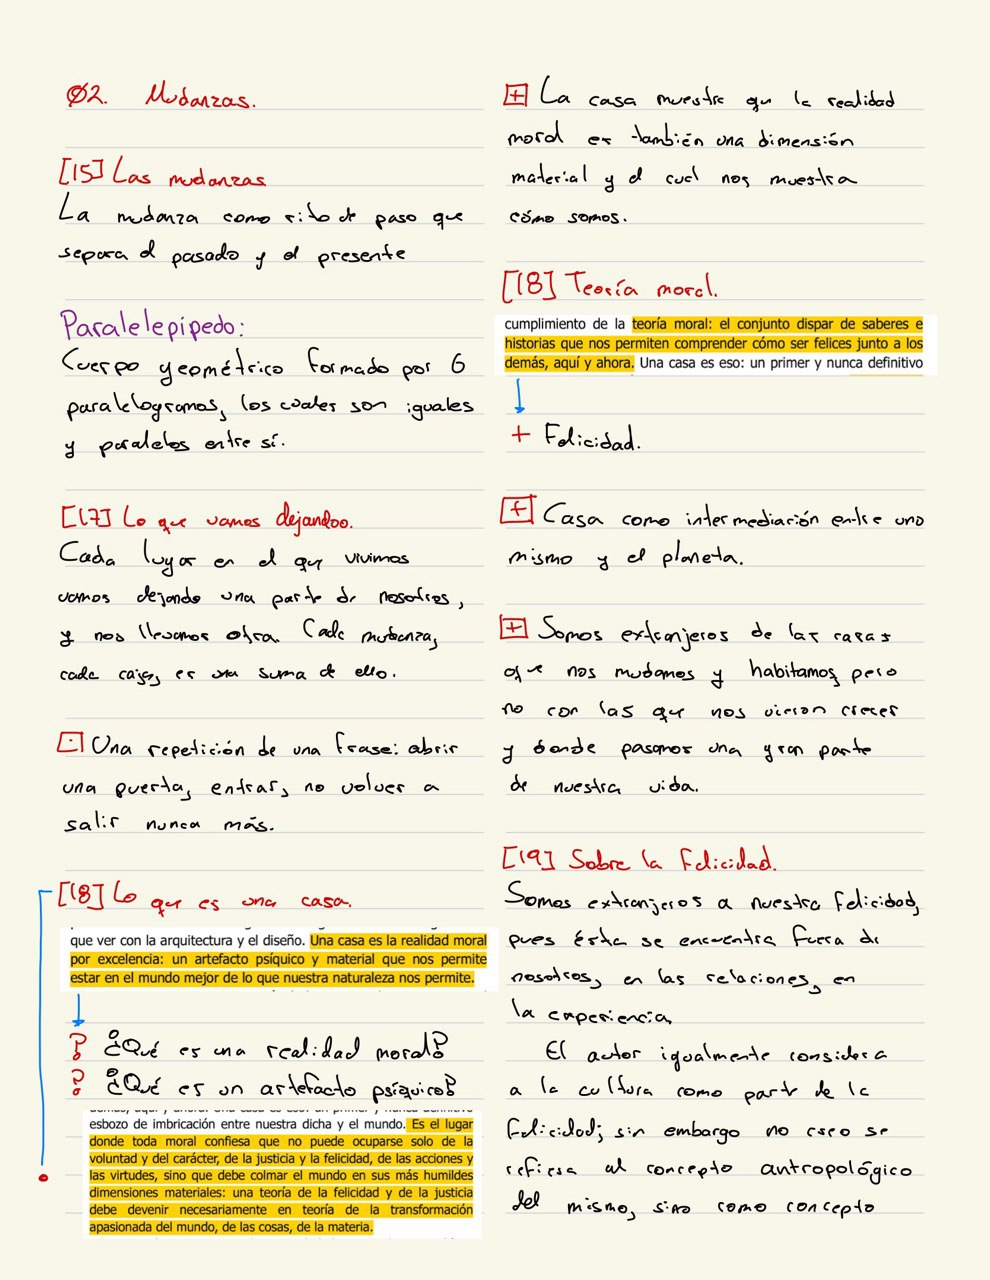 Ø2. Mudanzas.
[15] Las mudanzas
La mudanza como rito de paso que
separa el pasado y el presente
Paralelepípedo:
Cuerpo geométrico formado por 6
paralelogramos, los cuales son iguales
y paralelos entre sí.
[17] Lo que vamos dejandoo.
Cada lugar en el que vivimos
vamos dejando una parte de nosotros,
y nos llevamos otra. Cada mudanza,
cada caja, es una suma de ello.
Una repetición de una frase: abrir
una puerta, entrar, no volver a
salir nunca más.
[18] Lo que es una casa.
que ver con la arquitectura y el diseño. Una casa es la realidad moral
por excelencia: un artefacto psíquico y material que nos permite
estar en el mundo mejor de lo que nuestra naturaleza nos permite.
? ¿Qué es una realidad moral?
? ¿Qué es un artefacto psíquico?
demás, aquí y ahora. Una casa es eso: un primer y nunca definitivo
esbozo de imbricación entre nuestra dicha y el mundo. Es el lugar
donde toda moral confiesa que no puede ocuparse solo de la
voluntad y del carácter, de la justicia y la felicidad, de las acciones y
las virtudes, sino que debe colmar el mundo en sus más humildes
dimensiones materiales: una teoría de la felicidad y de la justicia
debe devenir necesariamente en teoría de la transformación
apasionada del mundo, de las cosas, de la materia.
+ La casa muestra que la realidad
moral es también una dimensión
material y el cual nos muestra
cómo somos.
[18] Teoría moral.
cumplimiento de la teoría moral: el conjunto dispar de saberes e
historias que nos permiten comprender cómo ser felices junto a los
demás, aquí y ahora. Una casa es eso: un primer y nunca definitivo
+ Felicidad.
+ Casa como intermediación entre uno
mismo y el planeta.
+ Somos extranjeros de las casas
que nos mudamos y habitamos, pero
no con las que nos vieron crecer
y donde pasamos una gran parte
de nuestra vida.
[19] Sobre la Felicidad.
Somos extranjeros a nuestra felicidad,
pues ésta se encuentra fuera de
nosotros, en las relaciones, en
la experiencia.
El autor igualmente considera
a la cultura como parte de la
felicidad; sin embargo no creo se
refiera al concepto antropológico
del mismo, sino como concepto